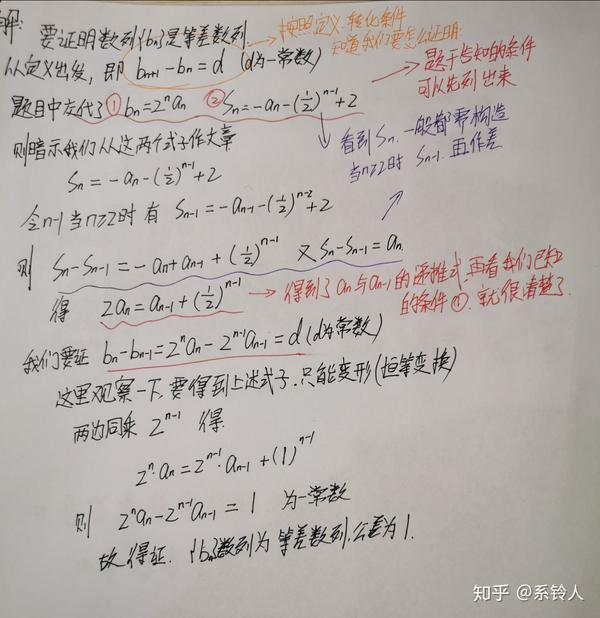 解: 要证明数列{bn}是等差数列
从定义出发, 即 bn+1 - bn = d (d为一常数)
按照定义, 转化条件
知道我们要怎么证明.
题目中交代了 ① bn=2^n an ② Sn=-an-(1/2)^(n-1)+2
题干告知的条件
可以先列出来
则暗示我们从这两个式子作文章
看到Sn, 一般都要构造
当n≥2时 Sn-1. 再作差
Sn=-an-(1/2)^(n-1)+2
令n-1 当n≥2时 有 Sn-1=-an-1-(1/2)^(n-2)+2
则 Sn-Sn-1=-an+an-1+(1/2)^(n-1) 又Sn-Sn-1=an.
得 2an=an-1+(1/2)^(n-1)
得到了an与an-1的递推式, 再看我们已知
的条件①. 就很清楚了.
我们要证 bn-bn-1=2^n an-2^(n-1)an-1=d (d为常数)
这里观察一下, 要得到上述式子, 只能变形(恒等变换)
两边同乘 2^(n-1) 得
2^n·an=2^(n-1)·an-1+(1)^(n-1)
则 2^n an-2^(n-1)an-1=1 为一常数
故得证. {bn}数列为等差数列, 公差为1.
知乎 @系铃人